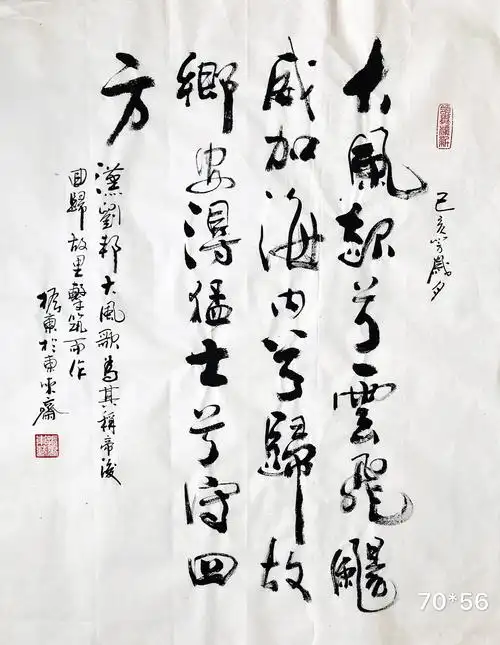 己亥歲夕
大風起兮雲飛颺
威加海内兮歸故
鄉安得猛士兮守四
方
漢劉邦大風歌為其稱帝後
回歸故里擊筑而作
於東齋
70*56